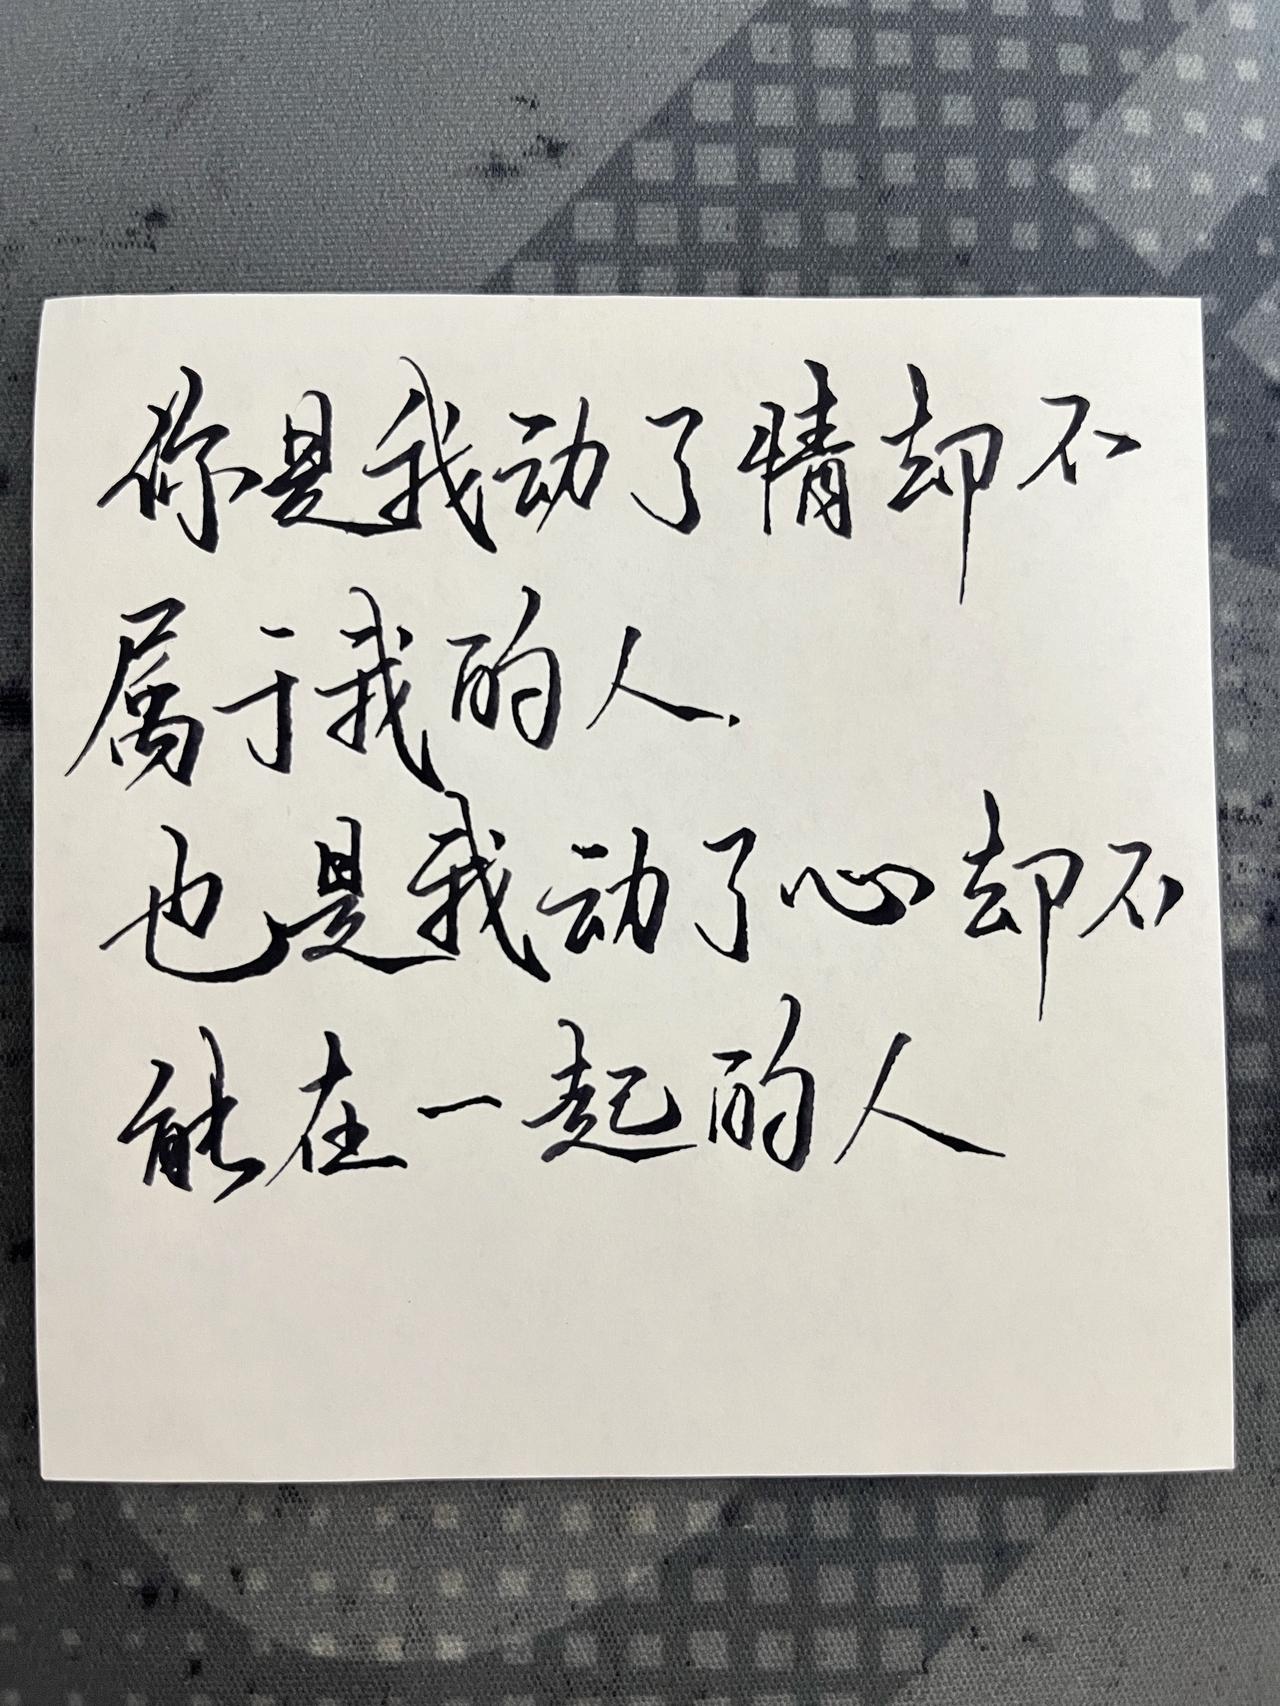 你是我动了情却不
属于我的人.
也是我动了心却不
能在一起的人